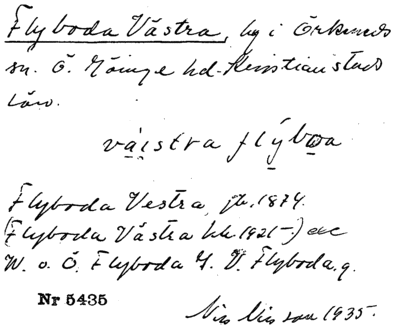 Flyboda Västra, by i Örkeneds
sn. Ö. Göinge hd. Kristianstads
län.
väistra flyboa
Flyboda Vestra jb. 1874.
(Flyboda Västra kk 1921-) ec
W. o. Ö. Flyboda G. V. Flyboda, g.
Nr 5435
Nils Nilsson 1935.